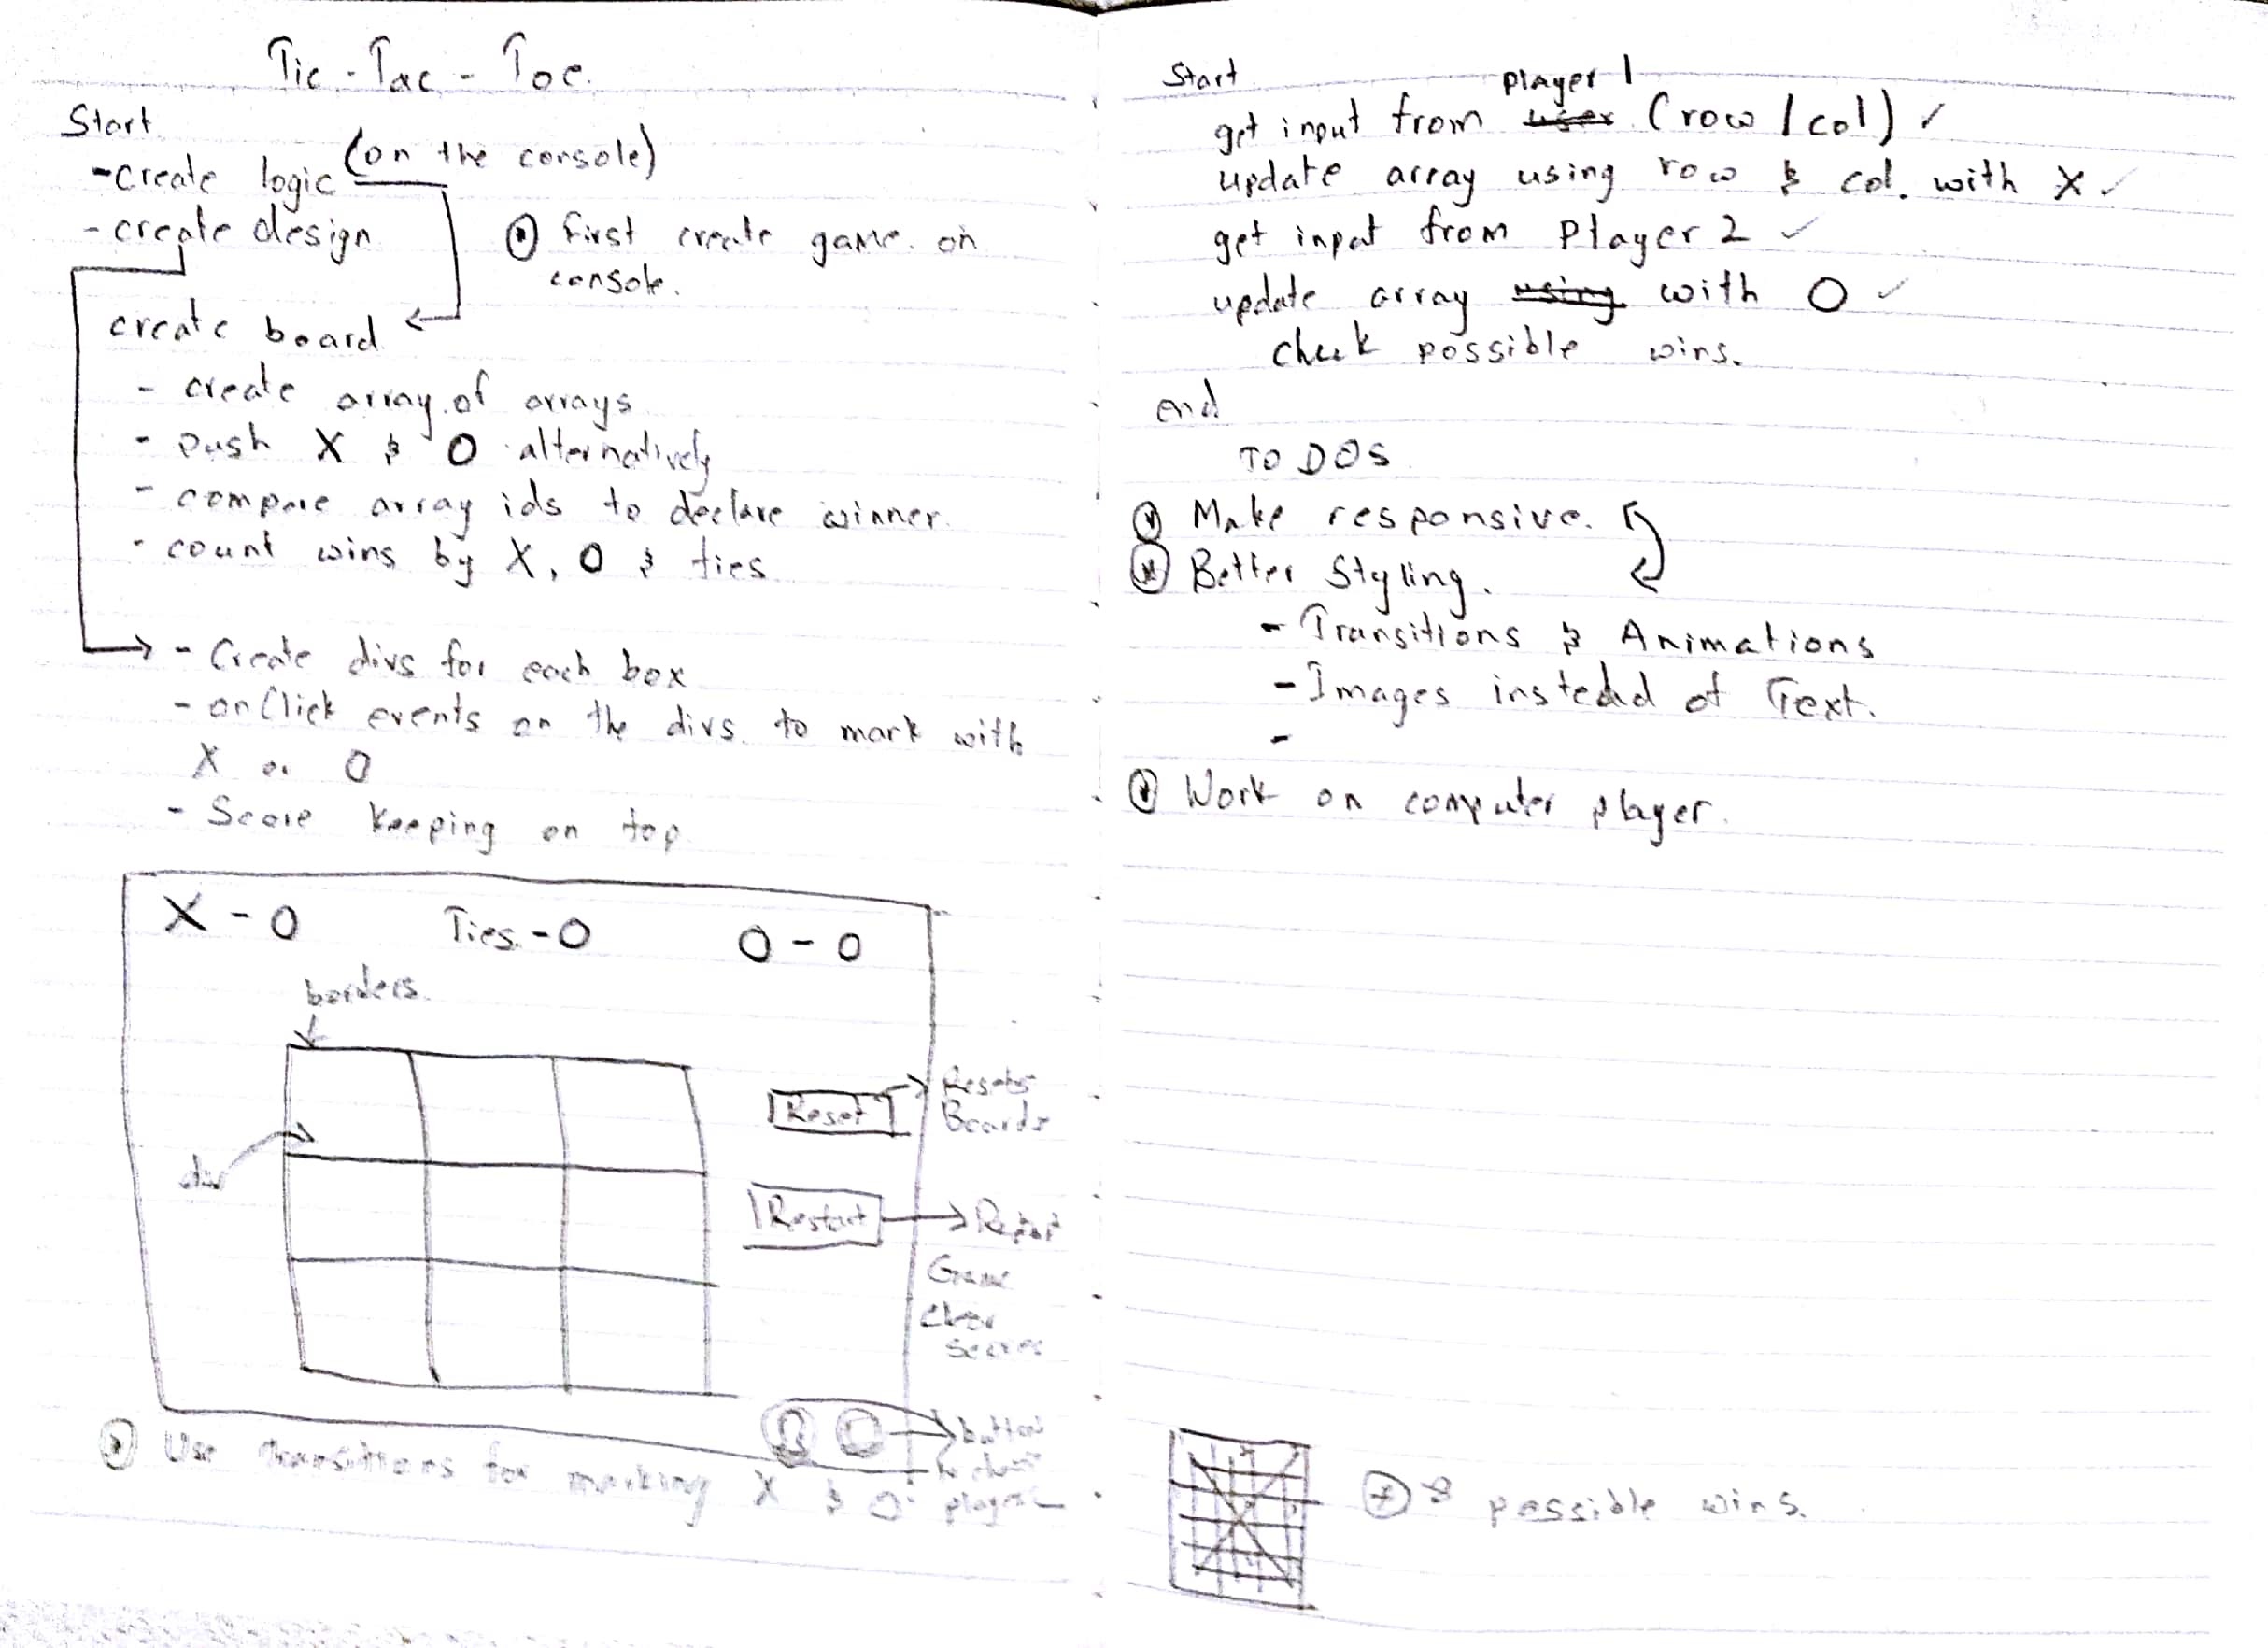 Tic - Tac - Toe.
Start
- create logic (on the console)
- create design
⊛ First create game on
console.
create board
- create array of arrays
- push X & O alternatively
- compare array ids to declare winner.
- count wins by X, O & ties
- Create divs for each box
- onClick events on the divs. to mark with
X or O
- Score keeping on top
X - 0 Ties - 0 O - 0
borders.
div
Reset
Resets
Boards
Restart
Game
Clear
Scores
button
to
player
⊛ Use transitions for marking X & O
Start
player 1
get input from user (row / col) ✓
update array using row & col. with X ✓
get input from Player 2 ✓
update array using with O ✓
check possible wins.
end
TO DOS
⊛ Make responsive.
⊛ Better Styling.
- Transitions & Animations
- Images instead of Text.
-
⊛ Work on computer player.
8 possible wins.